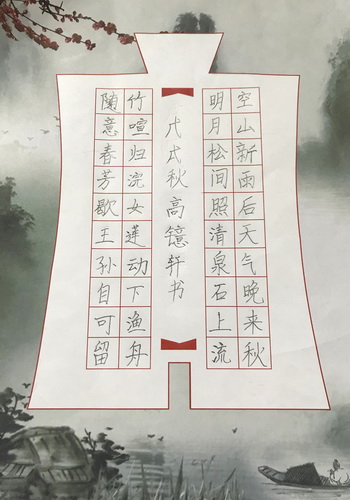 空山新雨后天气晚来秋
明月松间照清泉石上流
戊戌秋高镱轩书
竹喧归浣女莲动下渔舟
随意春芳歇王孙自可留